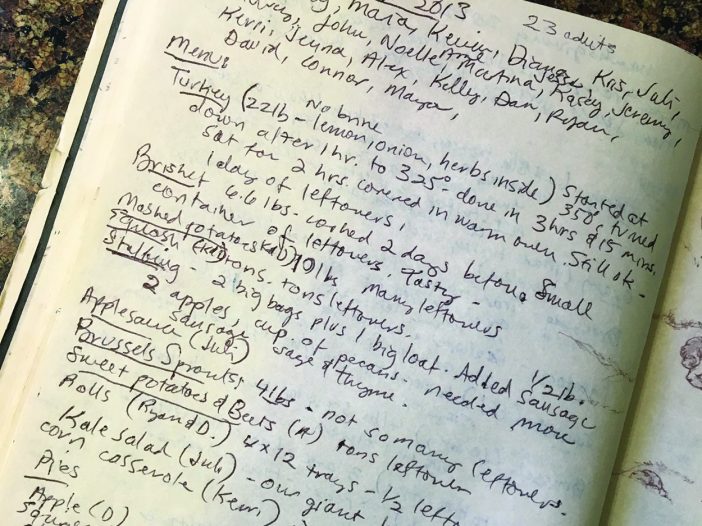 2013 23 adults
Maria, Kevin, Dianne, Kris, Juli,
John, Noelle, Martina, Kasey, Jeremy,
Kerri, Jenna, Alex, Kelly, Dan, Ryan,
David, Connor, Maya,
Menu:
No brine
Turkey (22lb - lemon, onion, herbs inside) Started at
350° turned down after 1 hr. to 325° - done in 3 hrs & 15 mins.
Sat for 2 hrs. covered in warm oven. Still ok -
1 day of leftovers.
Brisket 6.6 lbs. cooked 2 days before. Small
container of leftovers. Tasty -
Mashed potatoes 10 lbs many leftovers
Squash tons. tons leftovers.
Stuffing - 2 big bags plus 1 big loaf. Added 1/2 lb.
sausage
2 apples, cup of pecans - needed more
sausage sage & thyme.
Applesauce (Juli)
Brussels Sprouts, 4 lbs - not so many leftovers.
Sweet potatoes & Beets (A) tons leftover
Rolls (Ryan D.) 4x12 trays - 1/2 left
Kale salad (Juli) - our giant
Corn casserole (Kerri)
Pies
Apple (D)